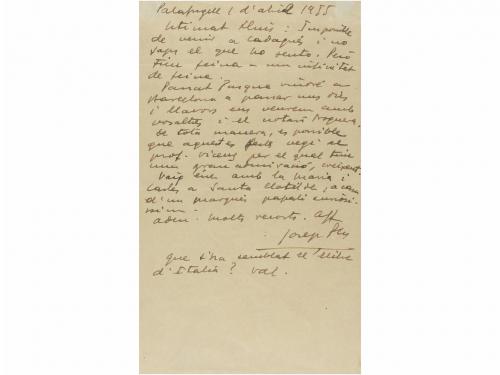 Palafrugell 1 d'abril 1955
Estimat Lluís: Impossible
de venir a Cadaqués i no
saps el que ho sento. Però
tinc feina – una infinitat
de feina.
Passat Pasqua vindré a
Barcelona a passar uns dies
i llavors ens veurem amb
vosaltres i el notari Noguera.
De tota manera, es possible
que aquestes festes vegi al
prof. Vicens per el qual tinc
una gran admiració,
Vaig ésser amb la Maria i
Carles a Santa Clotilde, a casa
d'un marquès papal: curiosís-
sim.
Adeu. Molts records. Aff
Josep Pla
que t'ha semblat el llibre
d'Itàlia? Val.